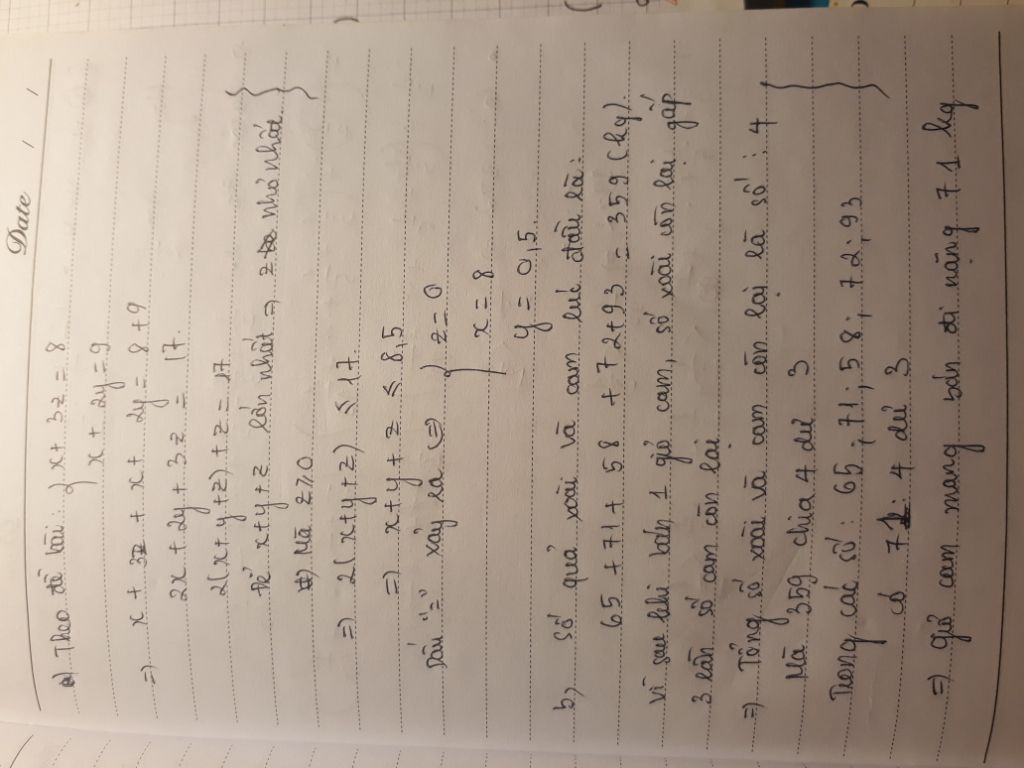 Date / /
a) Theo đề bài: { x + 3z = 8
x + 2y = 9
=> x + 3z + x + 2y = 8 + 9
2x + 2y + 3z = 17.
2(x+y+z) + z = 17
Để x+y+z lớn nhất => z nhỏ nhất
Mà z ≥ 0
=> 2(x+y+z) ≤ 17
=> x+y+z ≤ 8,5
Dấu "=" xảy ra (=) { z = 0
x = 8
y = 0,5.
b, Số quả xoài và cam lúc đầu là:
65 + 71 + 58 + 72 + 93 = 359 (kg)
Vì sau khi bán 1 giỏ cam, số xoài còn lại gấp
3 lần số cam còn lại
=> Tổng số xoài và cam còn lại là số : 4
Mà 359 chia 4 dư 3
Trong các số : 65 ; 71 ; 58 ; 72 ; 93
có 71 : 4 dư 3
=> giỏ cam mang bán đi nặng 71 kg